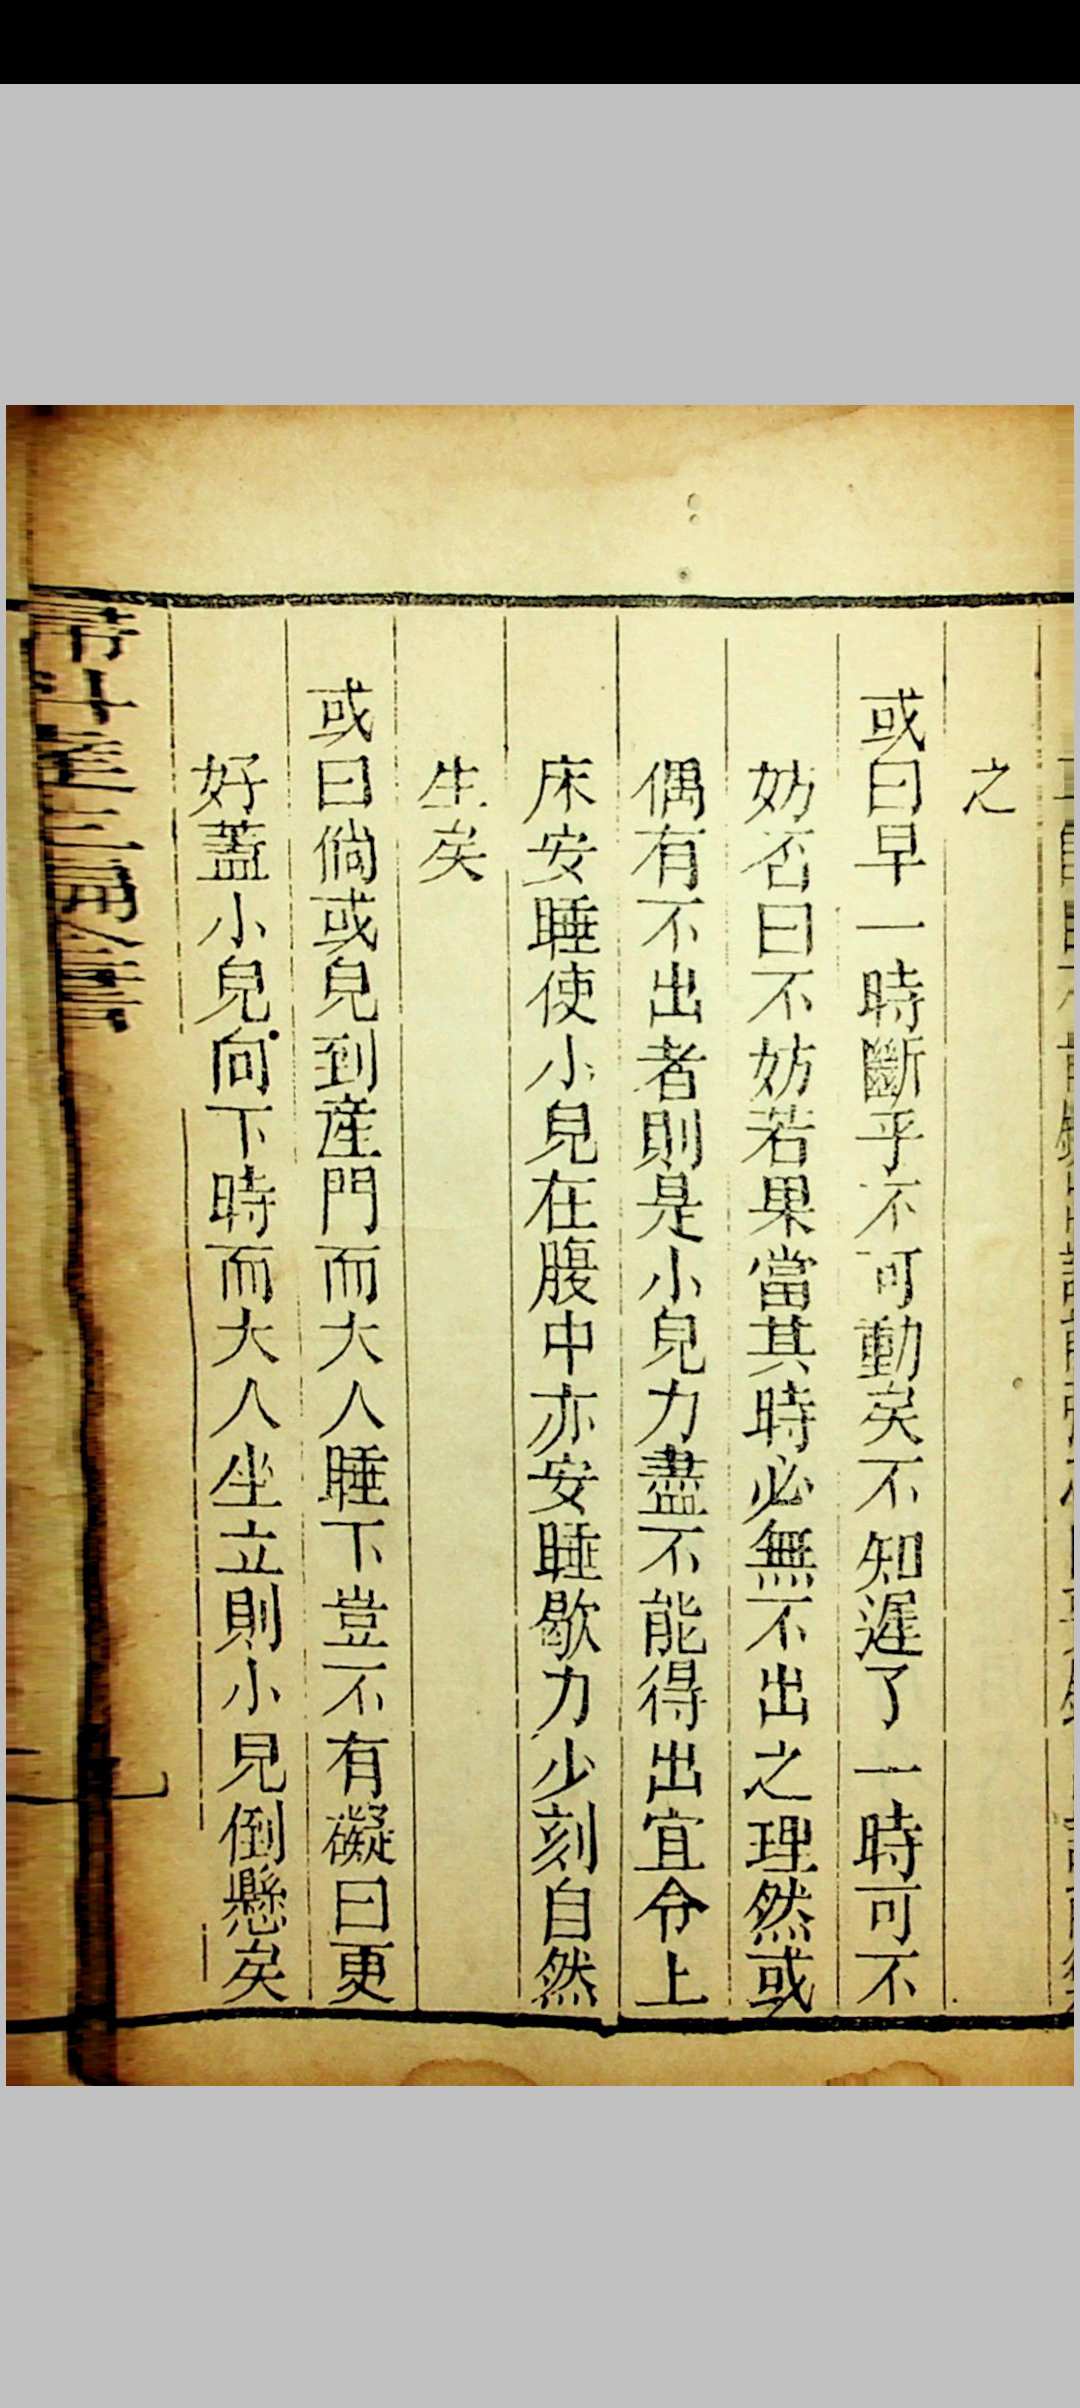 之
或曰早一時斷乎不可動矣不知遲了一時可不
妨否曰不妨若果當其時必無不出之理然或
偶有不出者則是小兒力盡不能得出宜令上
床安睡使小兒在腹中亦安睡歇力少刻自然
生矣
或曰倘或兒到産門而大人睡下豈不有礙曰更
好蓋小兒向下時而大人坐立則小兒倒懸矣